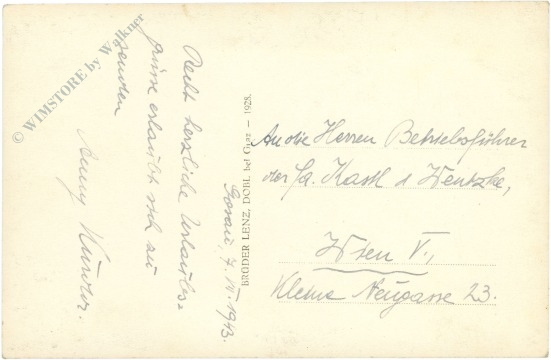 © WIMSTORE by Walkner
Gosau, 7. IV. 1943.
Recht herzliche Urlaubs-
grüsse erlaubt sich zu
senden
Anny
BRÜDER LENZ, DOBL bei Graz – 1928.
An die Herren Betriebsführer
der Fa. Kastl & Wentzke,
Wien V.,
Kleine Neugasse 23.